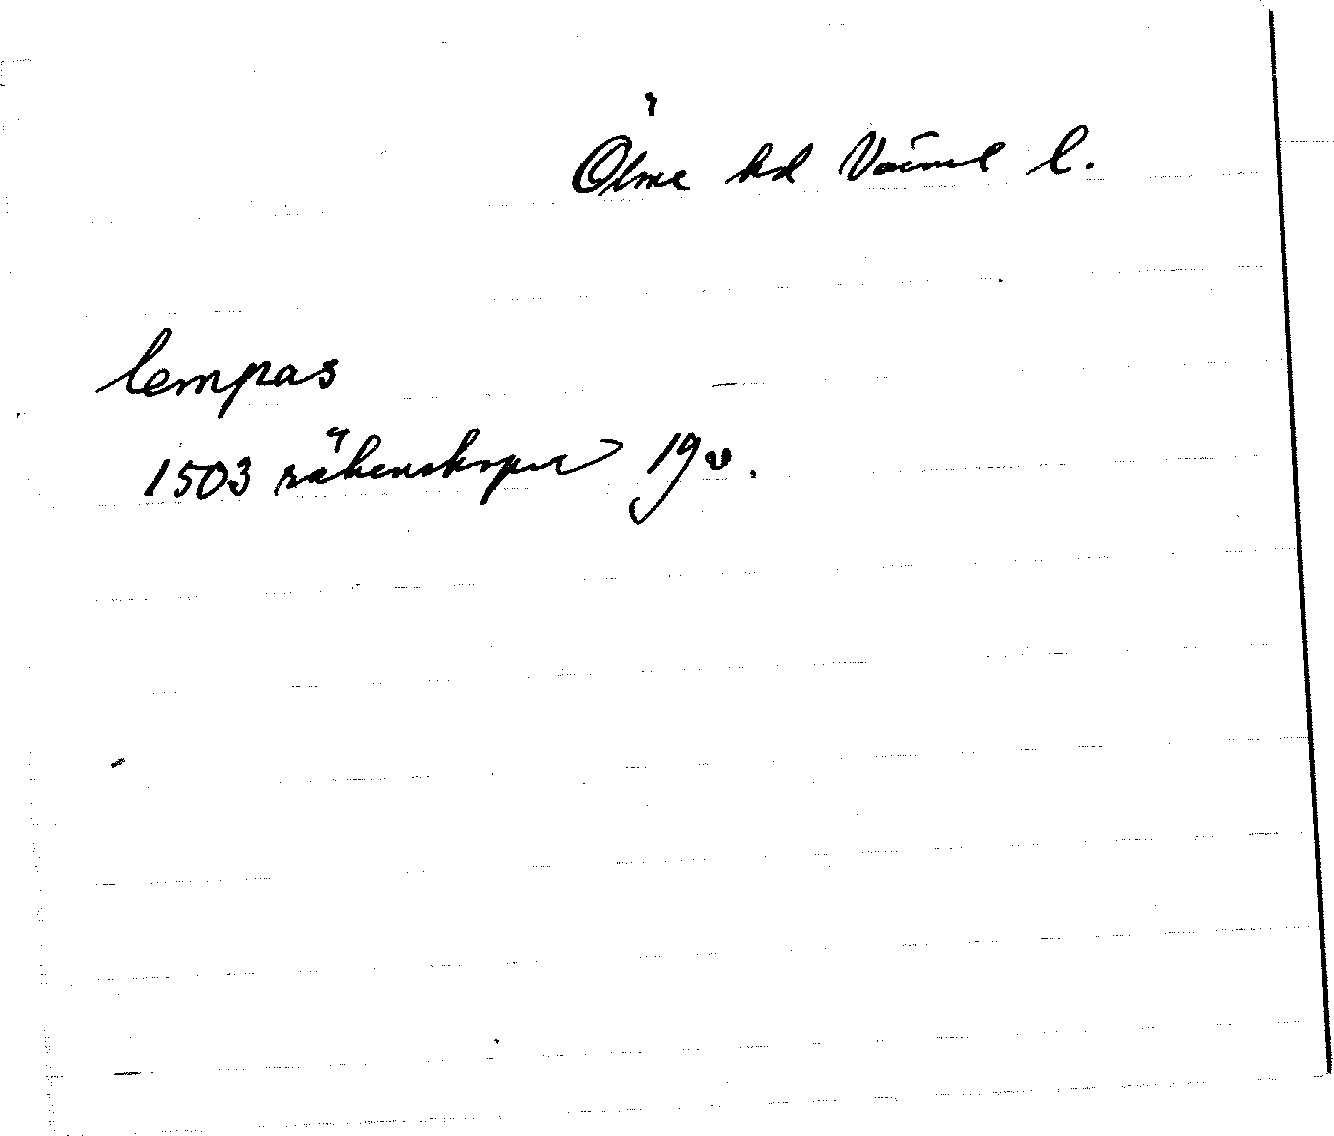 Ölme hd Värml l.
lempas
1503 räkenskaper 19 v.